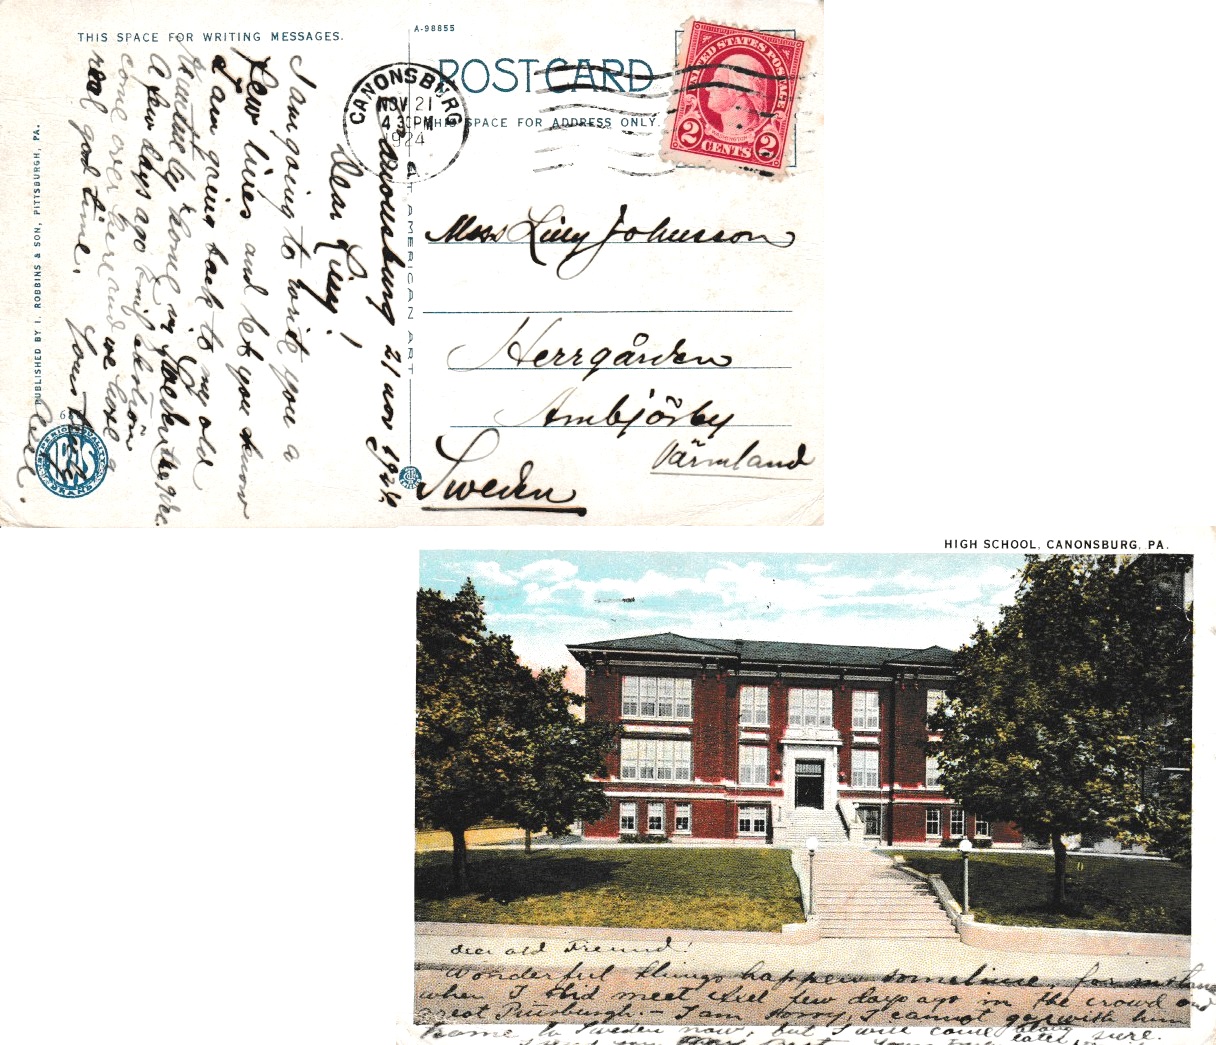 THIS SPACE FOR WRITING MESSAGES.
A-98655
POST CARD
THIS SPACE FOR ADDRESS ONLY.
CANONSBURG
NOV 21
430PM
1924
UNITED STATES POSTAGE
2 CENTS 2
PUBLISHED BY I. ROBBINS & SON, PITTSBURGH, PA.
AMERICAN ART
Canonsburg 21 nov 1924
Dear Lilly!
I am going to write you a
few lines and let you know
I am going back to my old
home in
a few days ago Emil
come over here and we have a
real good time.
Yours
Axel.
Miss Lilly Johnsson
Herrgården
Ambjörby
Värmland
Sweden
HIGH SCHOOL, CANONSBURG, PA.
Dear old Freund!
Wonderful things happen sometime, for instance
when I did meet Axel few days ago in the crowd and
great Pittsburgh. - I am sorry, I cannot go with him
home to Sweden now, but I will come along later sure.